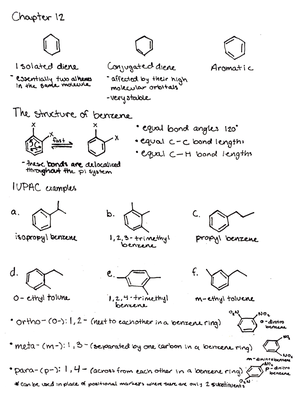 Chapter 12
Isolated diene
- essentially two alkenes
in the same molecule
Conjugated diene
- affected by their high
molecular orbitals
- very stable
Aromatic
The structure of benzene
X
X
X
X
fast
- these bonds are delocalized
throughout the pi system
• equal bond angles 120°
• equal C-C bond lengths
• equal C-H bond lengths
IUPAC examples
a.
isopropyl benzene
b.
1,2,3-trimethyl
benzene
c.
propyl benzene
d.
o-ethyl tolune
e.
1,2,4-trimethyl
benzene
f.
m-ethyl toluene
• ortho- (o-): 1,2- (next to each other in a benzene ring)
NO₂
NO₂
o-dinitro
benzene
• meta- (m-): 1,3- (separated by one carbon in a benzene ring)
NO₂
m-dinitrobenzene
• para- (p-): 1,4- (across from each other in a benzene ring)
NO₂
p-dinitro
benzene
* can be used in place of positional markers when there are only 2 substituents